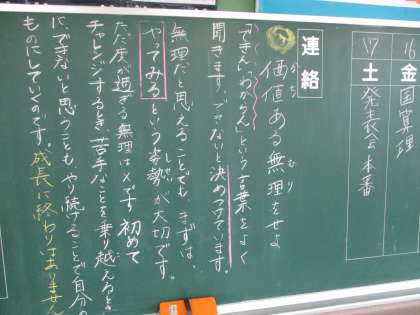 16 金 国算理
17 土 発表会本番
連絡
価値ある無理をせよ
かち
むり
「できん」「わからん」という言葉をよく
聞きます。できないと決めつけています。
無理だと思えることでも、まずは、
やってみるという姿勢が大切です。
しせい
ただ度が過ぎる無理は×です。初めて
チャレンジするとき、苦手なことを乗り越えると
に、できないと思うことも、やり続けることで自分の
ものにしていくのです。成長に終わりはありません